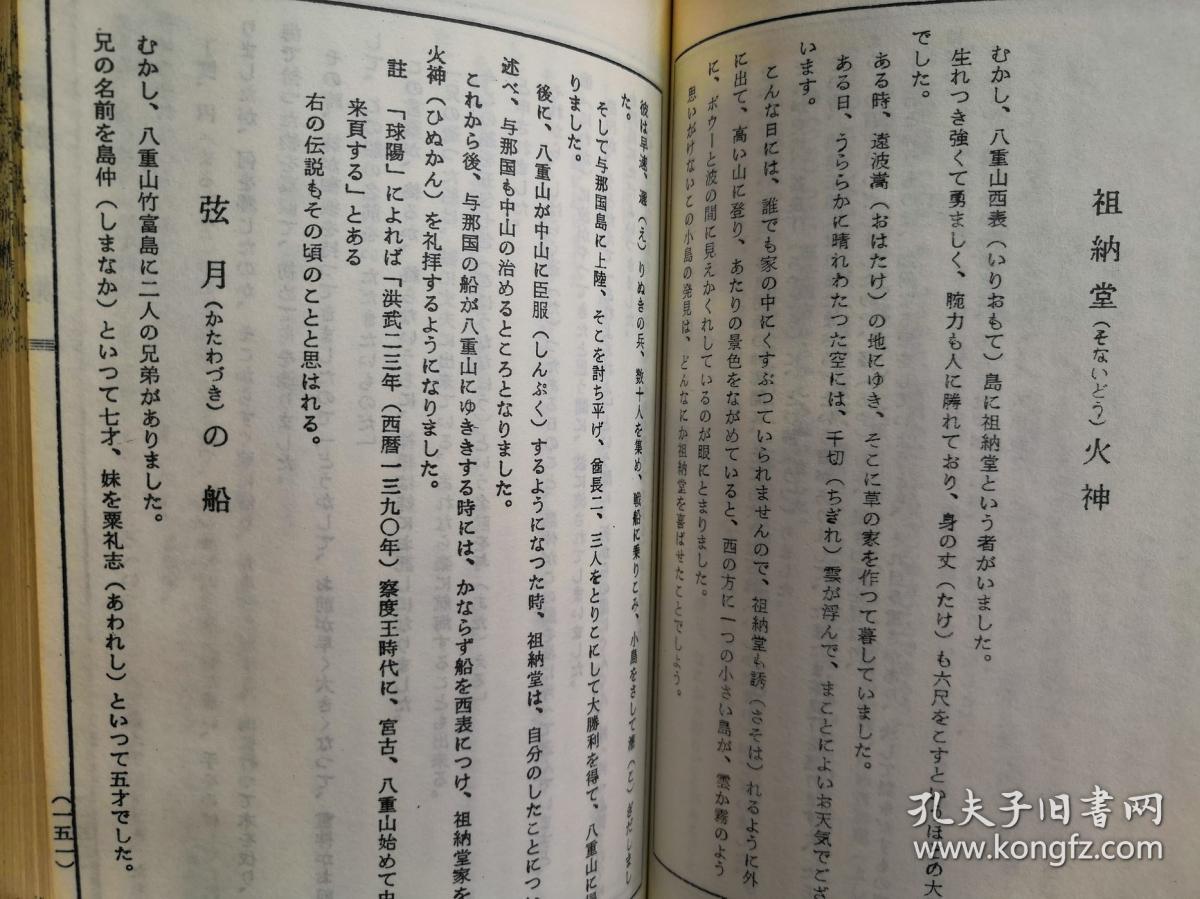 祖納堂（そないどう）火神
むかし、八重山西表（いりおもて）島に祖納堂という者がいました。
生れつき強くて勇ましく、腕力も人に勝れており、身の丈（たけ）も六尺をこすという
の大
でした。
ある時、遠波嵩（おはたけ）の地にゆき、そこに草の家を作つて暮していました。
ある日、うららかに晴れわたつた空には、千切（ちぎれ）雲が浮んで、まことによいお天気でござ
います。
こんな日には、誰でも家の中にくすぶつていられませんので、祖納堂も誘（さそは）れるように外
に出て、高い山に登り、あたりの景色をながめていると、西の方に一つの小さい島が、雲か霧のよう
に、ボウーと波の間に見えかくれしているのが眼にとまりました。
思いがけないこの小島の発見は、どんなにか祖納堂を喜ばせたことでしよう。
彼は早速、選（え）りぬきの兵、数十人を集め、戦船に乗りこみ、小島をさして漕（こ）ぎだしまし
た。
そして与那国島に上陸、そこを討ち平げ、酋長二、三人をとりこにして大勝利を得て、八重山に
りました。
後に、八重山が中山に臣服（しんぷく）するようになつた時、祖納堂は、自分のしたことにつ
述べ、与那国も中山の治めるところとなりました。
これから後、与那国の船が八重山にゆききする時には、かならず船を西表につけ、祖納堂家を
火神（ひぬかん）を礼拝するようになりました。
註　「球陽」によれば「洪武二三年（西暦一三九〇年）察度王時代に、宮古、八重山始めて中
来貢する」とある
右の伝説もその頃のことと思はれる。
弦月（かたわづき）の船
むかし、八重山竹富島に二人の兄弟がありました。
兄の名前を島仲（しまなか）といつて七才、妹を粟礼志（あわれし）といつて五才でした。
（一五一）
孔夫子旧书网
www.kongfz.com